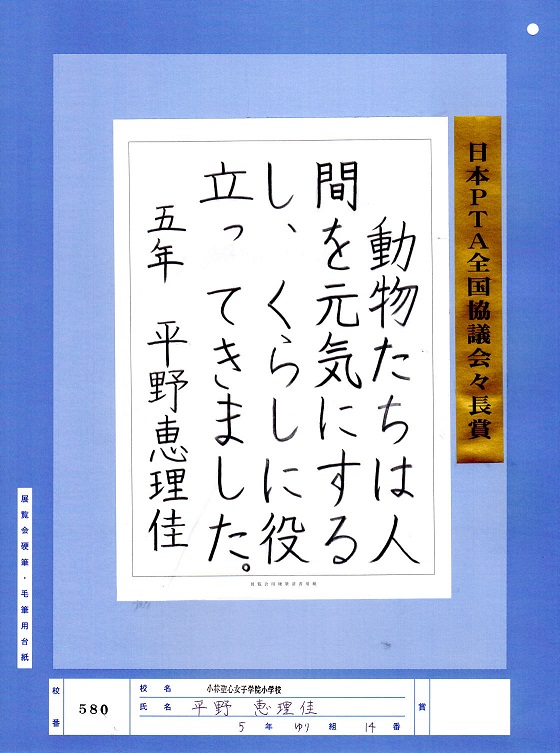 日本PTA全国協議会々長賞
動物たちは人
間を元気にする
し、くらしに役
立ってきました。
五年 平野恵理佳
展覧会硬筆・毛筆用台紙
校番 580
校名 小林聖心女子学院小学校
氏名 平野 恵理佳
5年 ゆり組 14番
賞